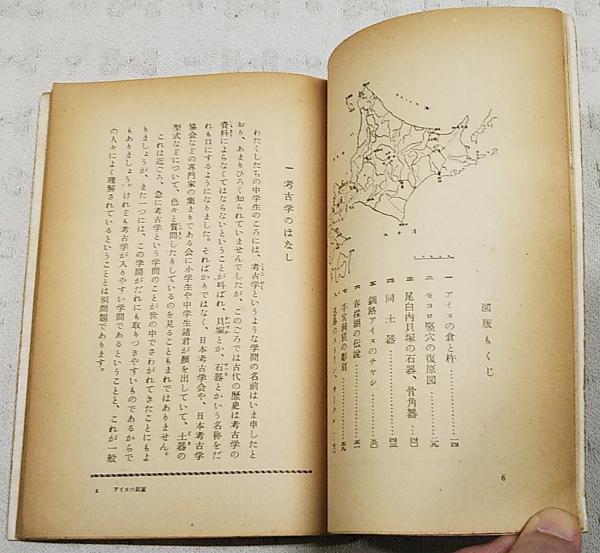 図版もくじ
一 アイヌの倉と杵……………一四
二 モコロ竪穴の復原図………二九
三 尾白内貝塚の石器、骨角器…四〇
四 同 土器……………………四三
五 釧路アイヌのチャシ…………五〇
六 春採湖の伝説………………五一
七 手宮洞窟の彫刻……………五九
6
一 考古学のはなし
わたくしたちの中学生のころには、考古学というような学問の名前はいま申したと
おり、あまりひろく知られていませんでしたが、このごろでは古代の歴史は考古学の
資料によらなくてはならないということが叫ばれ、貝塚とか、石器とかいう名称をだ
れも口にするようになりました。そればかりではなく、日本考古学会や、日本考古学
協会などの専門家の集まりである会に小学生や中学生諸君が顔を出していて、土器の
型式などについて、色々と質問したりしているのを見ることもまれではありません。
これは近ごろ、急に考古学という学問のことが世の中でさわがれてきたことにもよ
りましょうが、また一つには、この学問がだれにも取りつきやすいものであるからで
もありましょう。けれども考古学が入りやすい学問であるということと、これが一般
の人々によく理解されているということとは別問題であります。
アイヌの